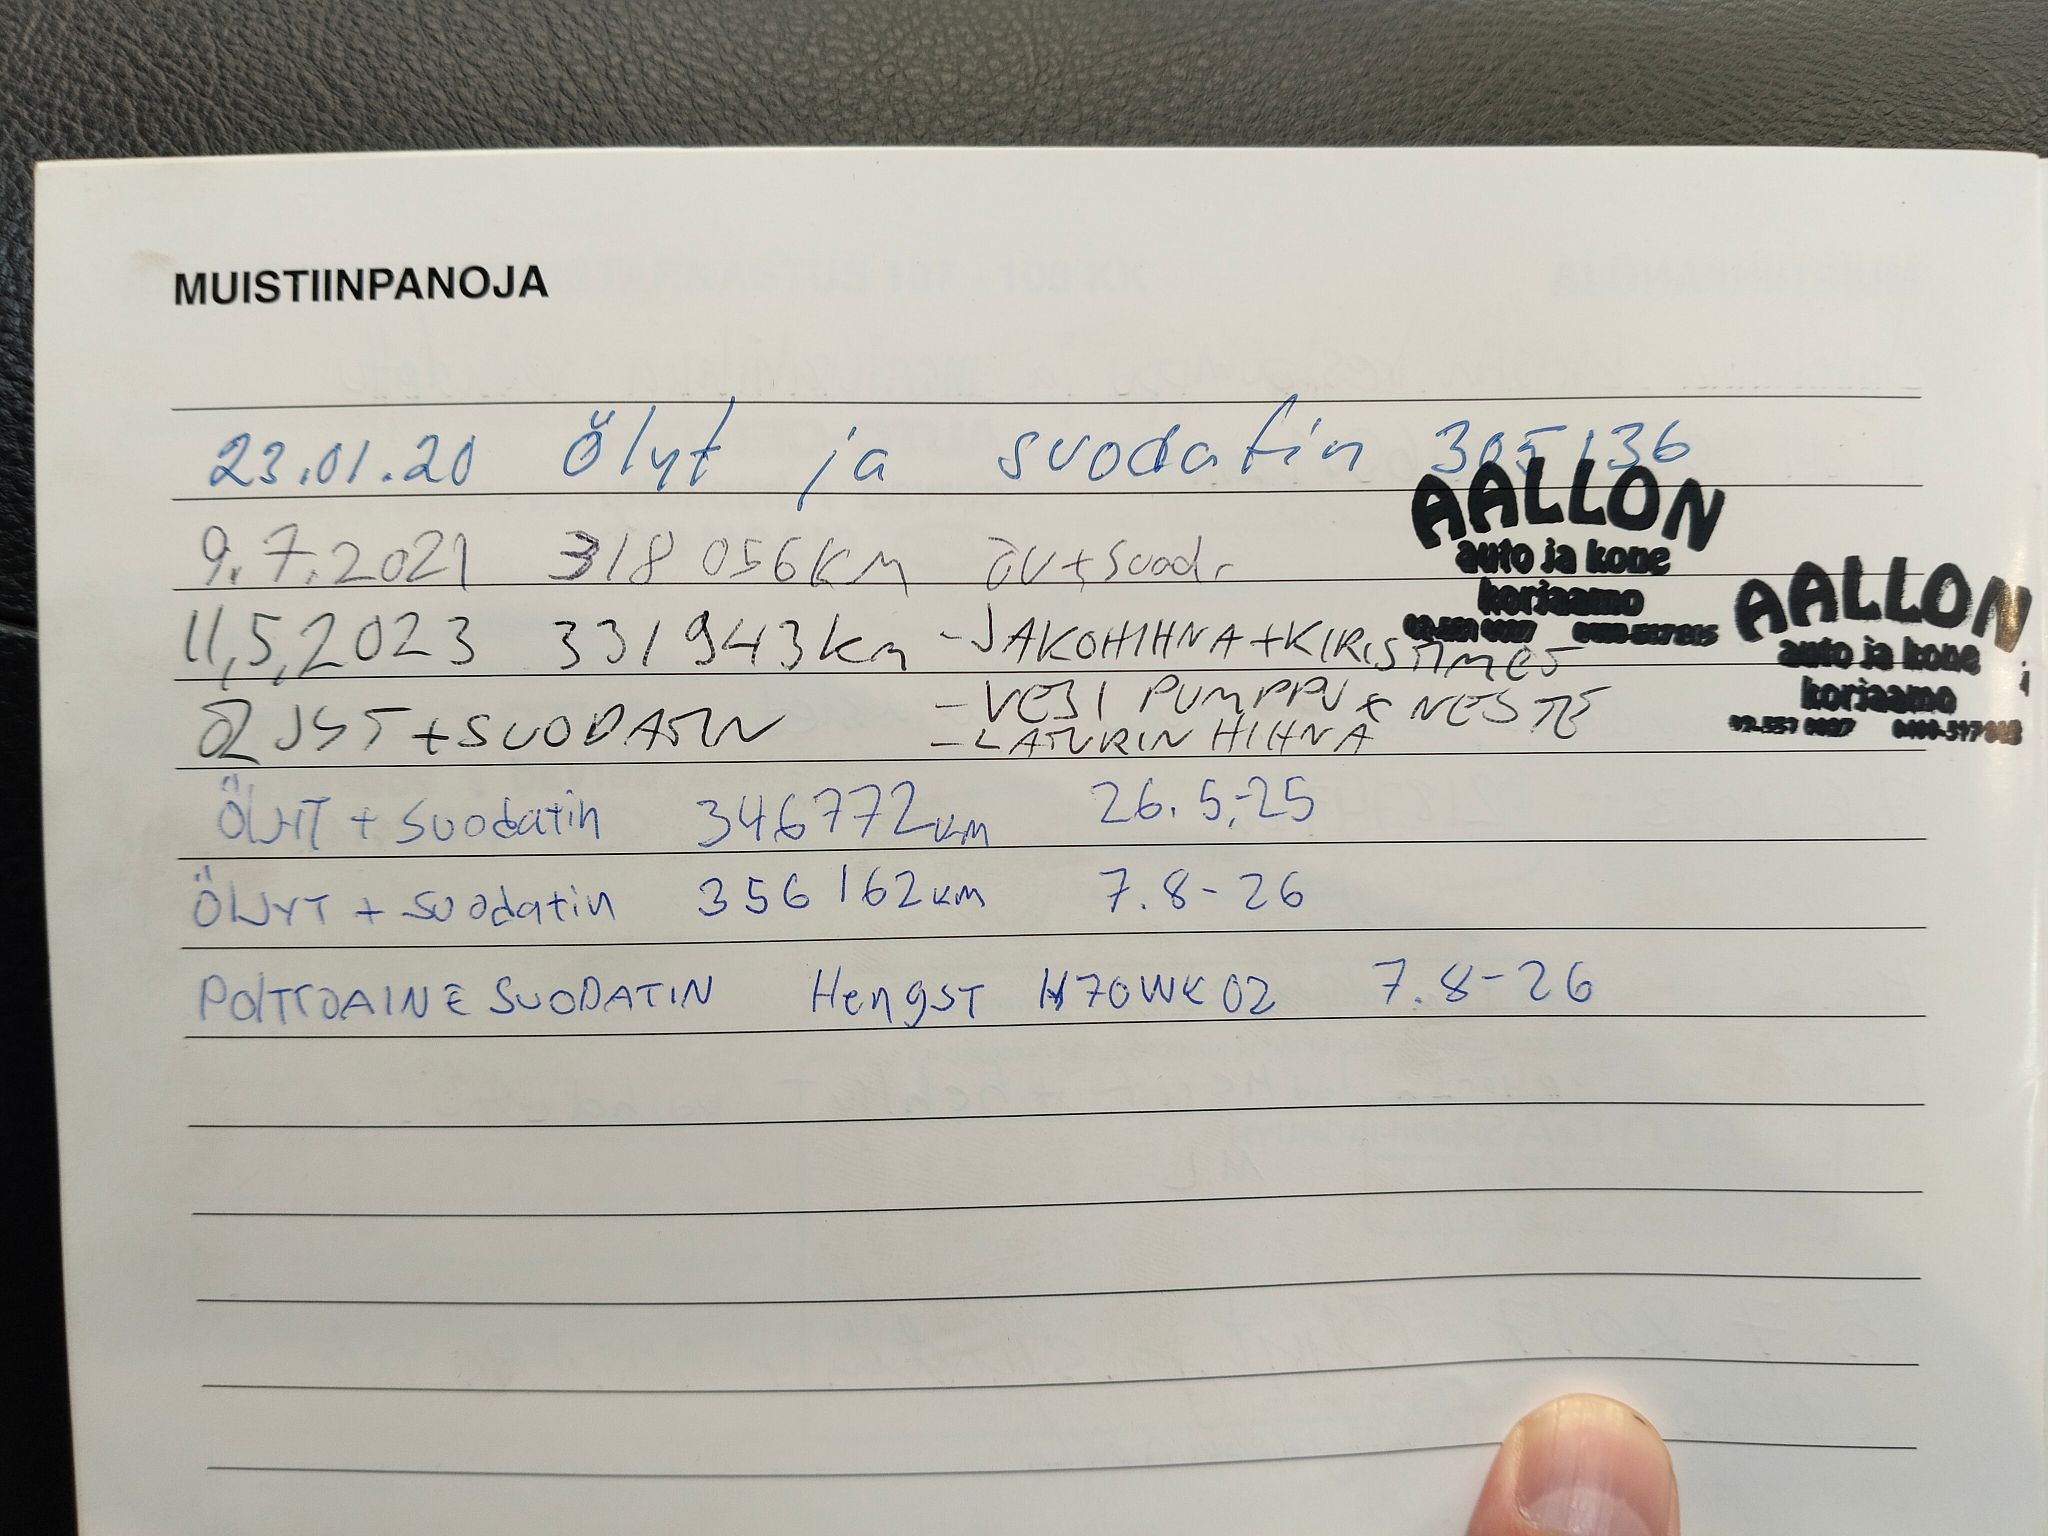 MUISTIINPANOJA
23.01.20 Ölyt ja suodatin 305136
9.7.2021 318 056KM öl+suod.
AALLON
auto ja kone
korjaamo
11,5,2023 331943km -JAKOHIHNA+KIRISTIMET
AALLON
auto ja kone
korjaamo
ÖLJYT+SUODATIN -VESI PUMPPU & NESTE
-LATURIN HIHNA
ÖLJYT + suodatin 346772KM 26.5,-25
ÖLJYT + suodatin 356162KM 7.8-26
POLTTOAINESUODATIN HengsT H70WK02 7.8-26